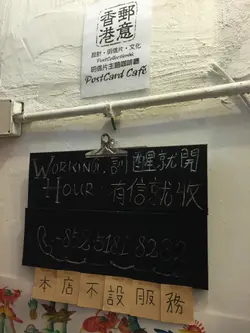 香港郵意
設計・明信片・文化
PostCollectionhk
明信片主題咖啡廳
PostCard Café
WORKING 訓醒就開
HOUR: 有信就收
852-5181 8232
本店不設服務